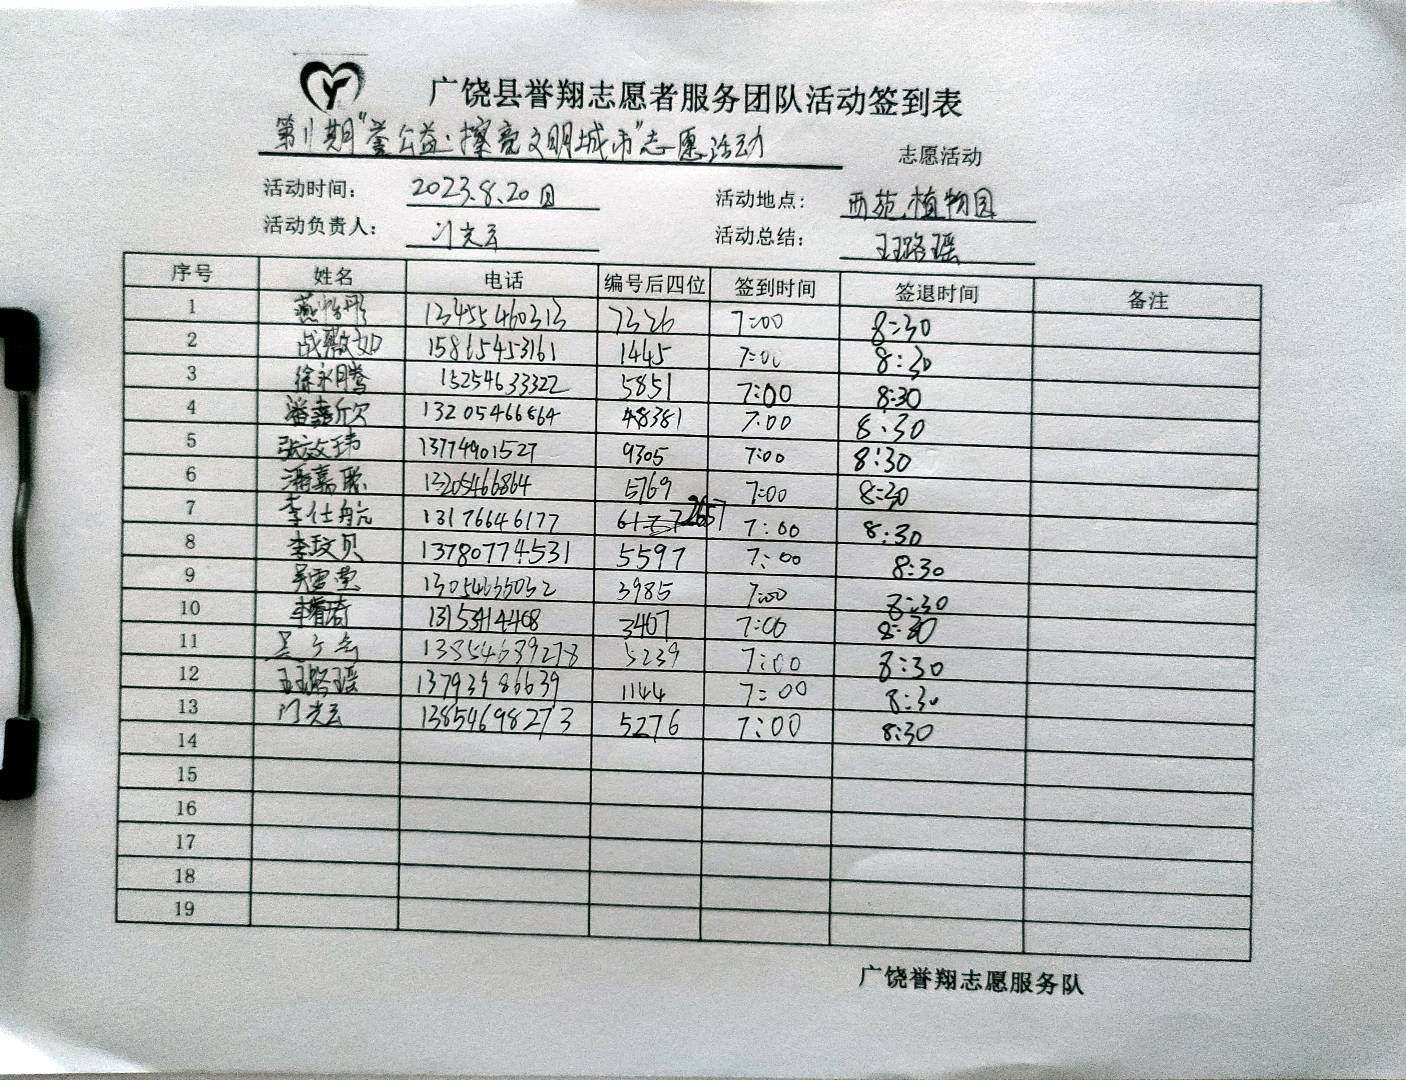 广饶县誉翔志愿者服务团队活动签到表
第11期"誉公益·擦亮文明城市"志愿活动 志愿活动
活动时间: 2023.8.20日 活动地点: 西苑.植物园
活动负责人: 门光云 活动总结: 王珏瑶
序号 姓名 电话 编号后四位 签到时间 签退时间 备注
1 燕怡彤 13455460313 7326 7:00 8:30
2 战薇如 15865453161 1445 7:00 8:30
3 徐永腾 15254633322 5851 7:00 8:30
4 潘鑫欣 13205466864 48381 7:00 8:30
5 张效玮 13774901527 9305 7:00 8:30
6 潘嘉聪 13205466864 5769 7:00 8:30
7 李仕航 13176646177 2657 7:00 8:30
8 李玟贝 13780774531 5597 7:00 8:30
9 吴雪莹 13054655032 3985 7:00 8:30
10 3407 7:00 8:30
11 13854639278 5239 7:00 8:30
12 13793986639 1144 7:00 8:30
13 门光云 13854698273 5276 7:00 8:30
14
15
16
17
18
19
广饶誉翔志愿服务队